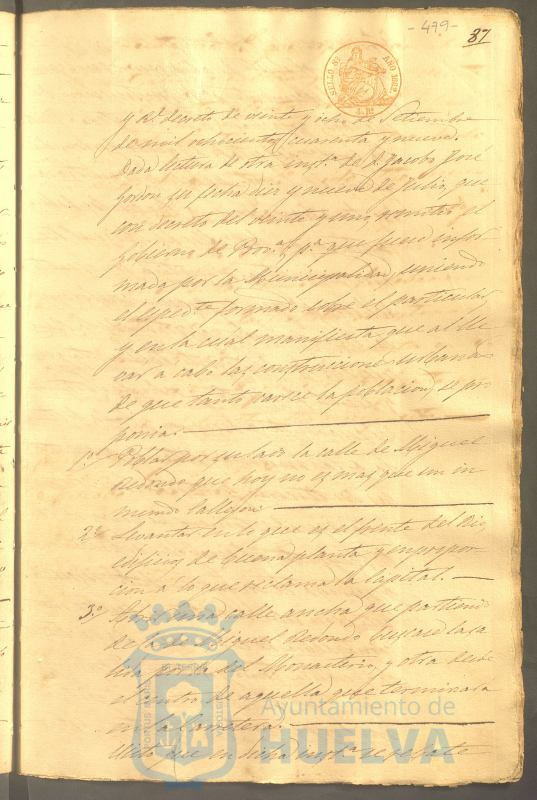 - 479 -
87
SELLO 9º AÑO 1862
y Rl. decreto de veinte y ocho de Setiembre
de mil ochocientos cuarenta y nueve.
Dada lectura de otra inst.ª de D. Jacobo José
Jordan su fecha diez y nueve de Julio, que
con decreto del veinte y uno remite el
Gobierno de Prov.ª p.ª que fuese infor
mada por la Municipalidad, uniendo
el expedte. formado sobre el particular,
y en la cual manifiesta que al lle
var a cabo las construcciones urbanas
de que tanto carece la poblacion, se pro
ponia.
1.º Poblar por su lado la calle de Miguel
Redondo que hoy no es mas que un in
mundo callejon.
2.º Levantar en lo que es el frente del Rio,
edificios de buena planta y en propor
cion á lo que reclama la Capital.
3.º Abrir una calle ancha que partiendo
de la de Miguel Redondo buscase la sa
lida por el del Monasterio, y otra desde
el centro de aquella que terminara
en la Carretera.
Visto que en dicha instª. se repite
PORTUS MARIS ET TERRAE CUSTODIA
Ayuntamiento de
HUELVA